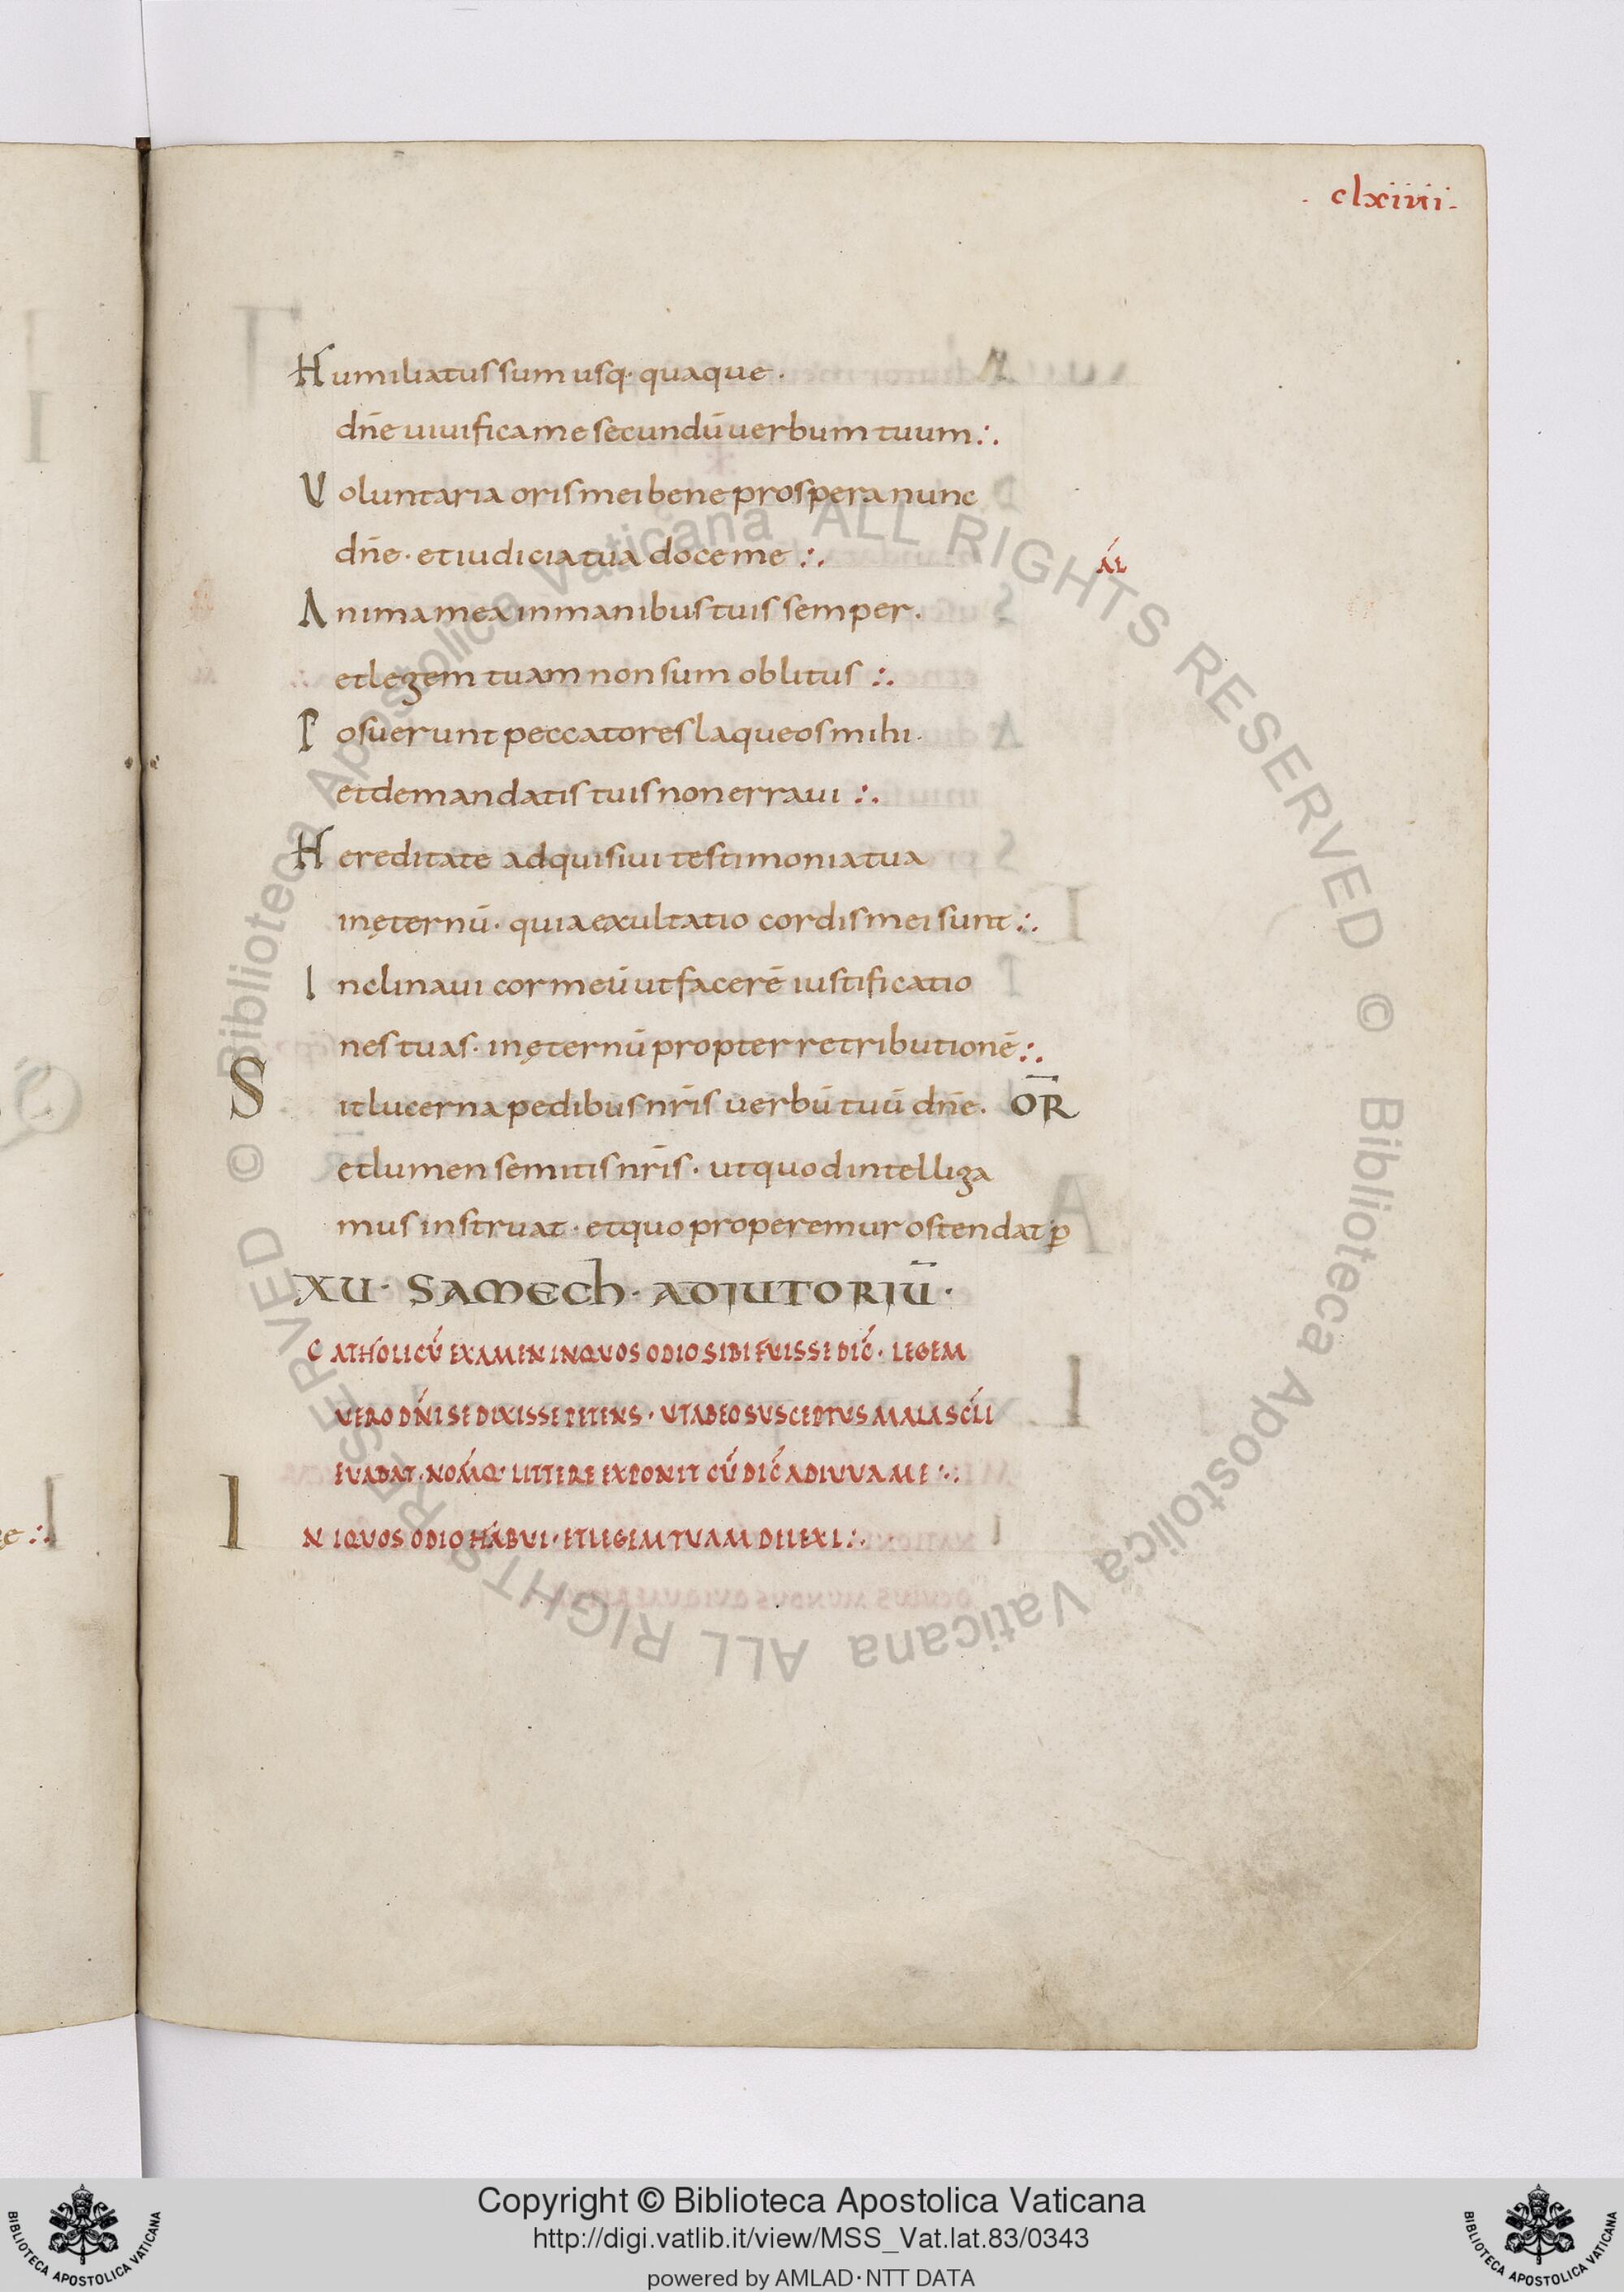 · clxiiii ·
Humiliatus sum usq· quaque ·
dn̄e uiuifica me secundū uerbum tuum :.
Uoluntaria oris mei bene prospera nunc
dn̄e · et iudicia tua doce me :.
Anima mea in manibus tuis semper ·
et legem tuam non sum oblitus :.
Posuerunt peccatores laqueos mihi ·
et de mandatis tuis non erraui :.
Hereditate adquisiui testimonia tua
in ęternū · quia exultatio cordis mei sunt :.
Inclinaui cor meū ut facerē iustificatio
nes tuas · in ęternū propter retributionē :.
Sit lucerna pedibus nr̄is uerbū tuū dn̄e · OR̄
et lumen semitis nr̄is · ut quod intelliga
mus instruat · et quo properemur ostendat p̲
XU · SAMECh · ADIUTORIŪ ·
CATHOLICŪ EXAMEN INQUOS ODIO SIBI FUISSE DIC̄ · LEGEM
UERO DN̄I SE DIXISSE PETENS · UT AB EO SUSCEPTUS MALA SC̄LI
EUADAT · NOM̄Q· LITTERE EXPONIT CŪ DIC̄ ADIUUA ME :.
INIQUOS ODIO HABUI · ET LEGEM TUAM DILEXI :.
© Biblioteca Apostolica Vaticana ALL RIGHTS RESERVED © Biblioteca Apostolica Vaticana ALL RIGHTS RESERVED
BIBLIOTECA APOSTOLICA VATICANA
Copyright © Biblioteca Apostolica Vaticana
http://digi.vatlib.it/view/MSS_Vat.lat.83/0343
powered by AMLAD·NTT DATA
BIBLIOTECA APOSTOLICA VATICANA